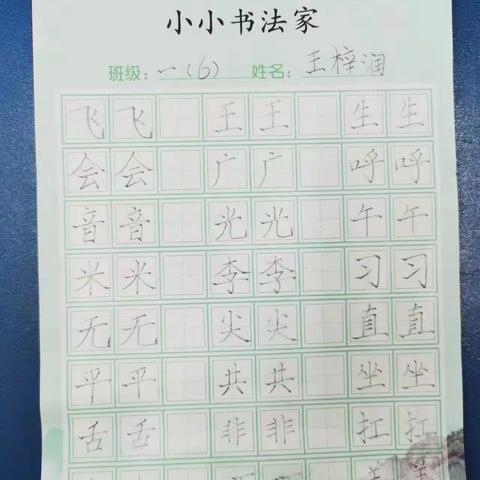 小小书法家
班级：一（6） 姓名：王梓润
飞飞 王王 生生
会会 广广 呼呼
音音 光光 午午
米米 李李 习习
无无 尖尖 直直
平平 共共 坐坐
舌舌 非非 扛扛